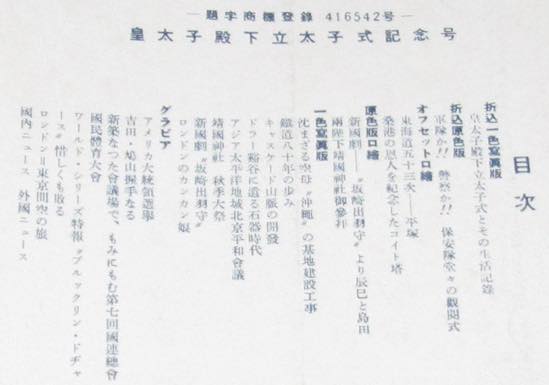 ―題字商標登錄 416542号―
皇太子殿下立太子式記念号
目次
折込一色寫眞版
皇太子殿下立太子式とその生活記錄
折込原色版
軍隊か!! 警察か!! 保安隊堂々の觀閲式
オフセット口繪
東海道五十三次――平塚
発港の恩人を紀念したコイト塔
原色版口繪
新國劇――〝坂崎出羽守〟より辰巳と島田
兩陛下靖國神社御參拜
一色寫眞版
沈まざる空母〝沖繩〟の基地建設工事
鐵道八十年の歩み
キャスケード山脈の開發
ドラー谿谷に遺る石器時代
アジア太平洋地域北京平和會議
靖國神社 秋季大祭
新國劇〝坂崎出羽守〟
ロンドンのカンカン娘
グラビア
アメリカ大統領選擧
吉田・鳩山握手なる
新築なつた會議場で、もみにもむ第七回國連總會
國民體育大會
ワールド・シリーズ特報〝ブルックリン・ドヂャ
ース〟惜しくも敗る
ロンドン=東京間空の旅
國内ニュース 外國ニュース